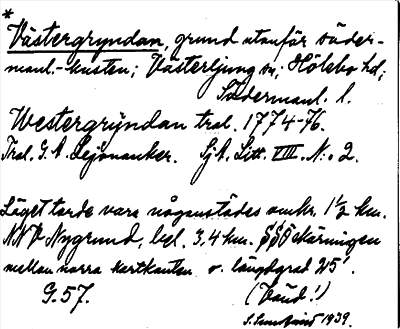 *
Västergryndan, grund utanför söder-
manl.-kusten; Västerljung sn; Hölebo hd;
Södermanl. l.
Westergrÿndan tral. 1774-76.
Tral. G. A. Lejonanker. Sjk. Litt. VIII. N:o 2.
Läget torde vara någonstädes omkr. 1½ km.
NNV Nygrund, bel. 3,4 km. SSO skärningen
mellan norra kartkanten o. längdgrad 25'.
G. 57.
(Vänd!)
1939.